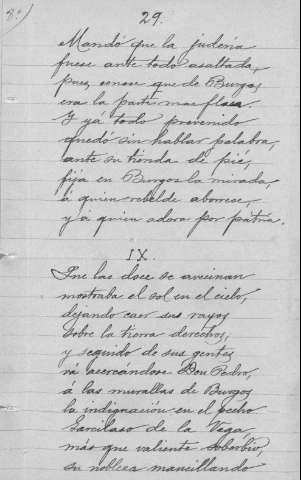 8ª)
29.
Mandó que la judería
fuese ante todo asaltada,
pues, que de Burgos
era la parte mas flaca
Y yá todo prevenido
quedó sin hablar palabra,
ante su tienda de pié,
fija en Burgos la mirada,
á quien rebelde aborrece,
y á quien adora por patria.
IX.
Que las doce se avecinan
mostraba el sol en el cielo,
dejando caer sus rayos
sobre la tierra derechos,
y seguido de sus gentes
vá acercándose Don Pedro,
á las murallas de Burgos
la indignacion en el pecho.
Garcilaso de la Vega
más que valiente soberbio,
su nobleza mancillando